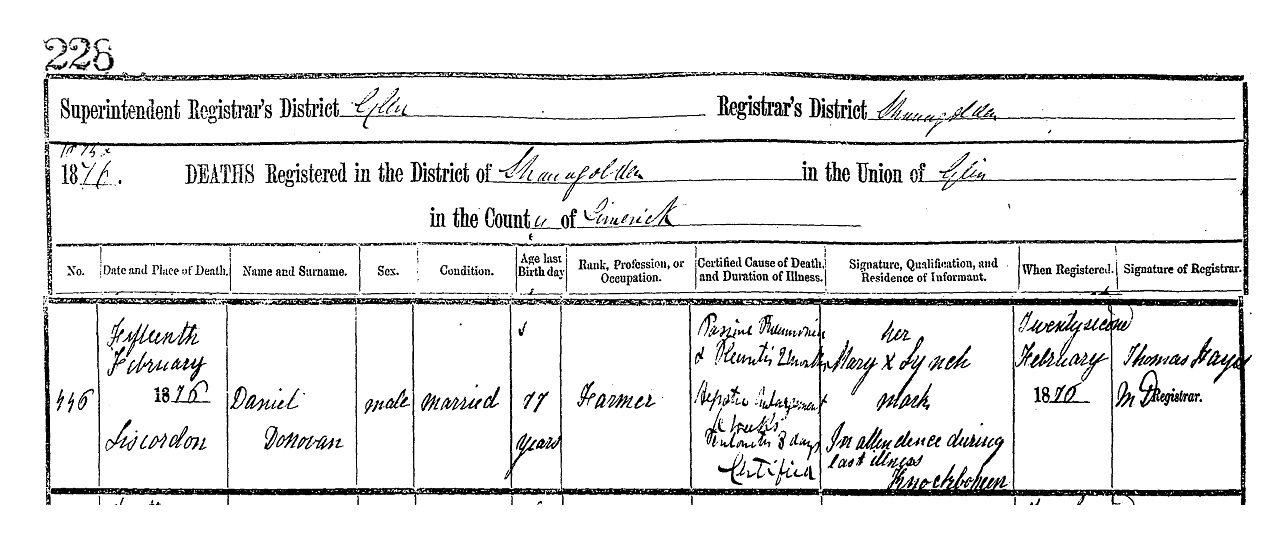 226
Superintendent Registrar's District Glin Registrar's District Shanagolden
1876. DEATHS Registered in the District of Shanagolden in the Union of Glin
in the County of Limerick
No. Date and Place of Death. Name and Surname. Sex. Condition. Age last Birth day Rank, Profession, or Occupation. Certified Cause of Death, and Duration of Illness. Signature, Qualification, and Residence of Informant. When Registered. Signature of Registrar.
446
Fifteenth
February
1876
Liscordon
Daniel
Donovan
male
married
77
years
Farmer
Passive Pneumonia
& Pleuritis 2
Hepatic Enlargement
weeks
3 days
Certified
her
Mary X Lynch
mark
In attendence during
last illness
Knockboheen
Twenty second
February
1876
Thomas Hayes
MD Registrar.